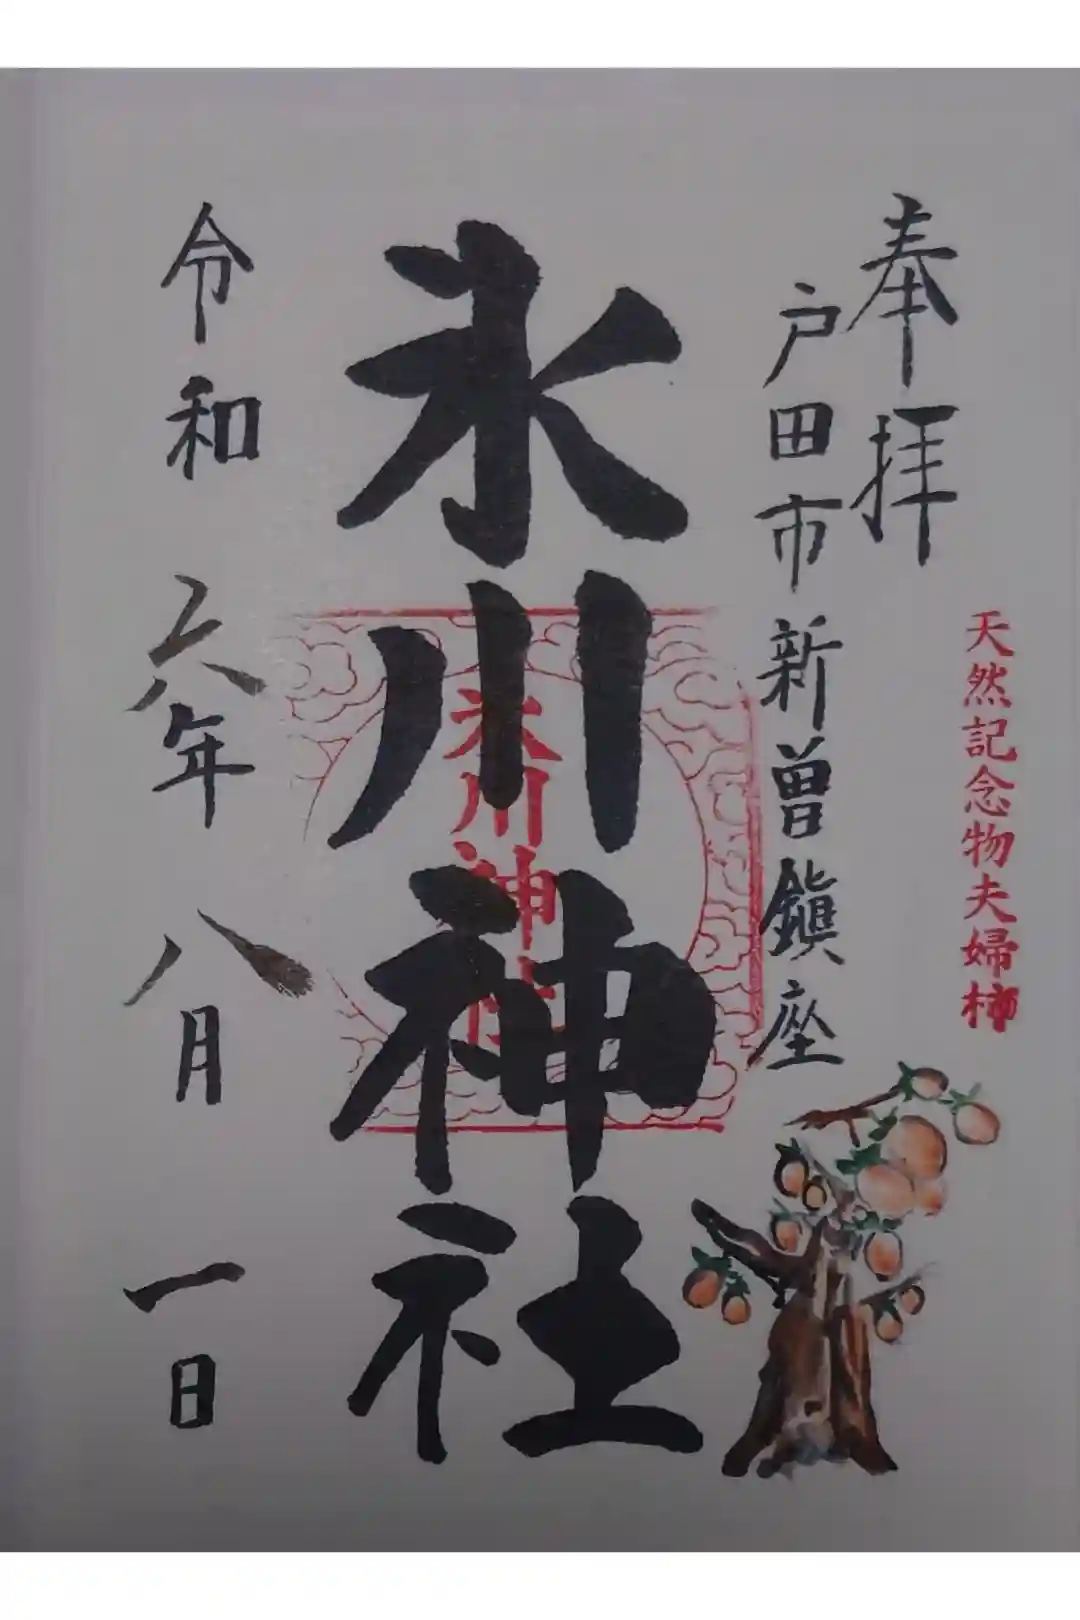 天然記念物夫婦柿
奉拝
戸田市新曽鎮座
氷川神社
氷川神社
令和六年八月一日